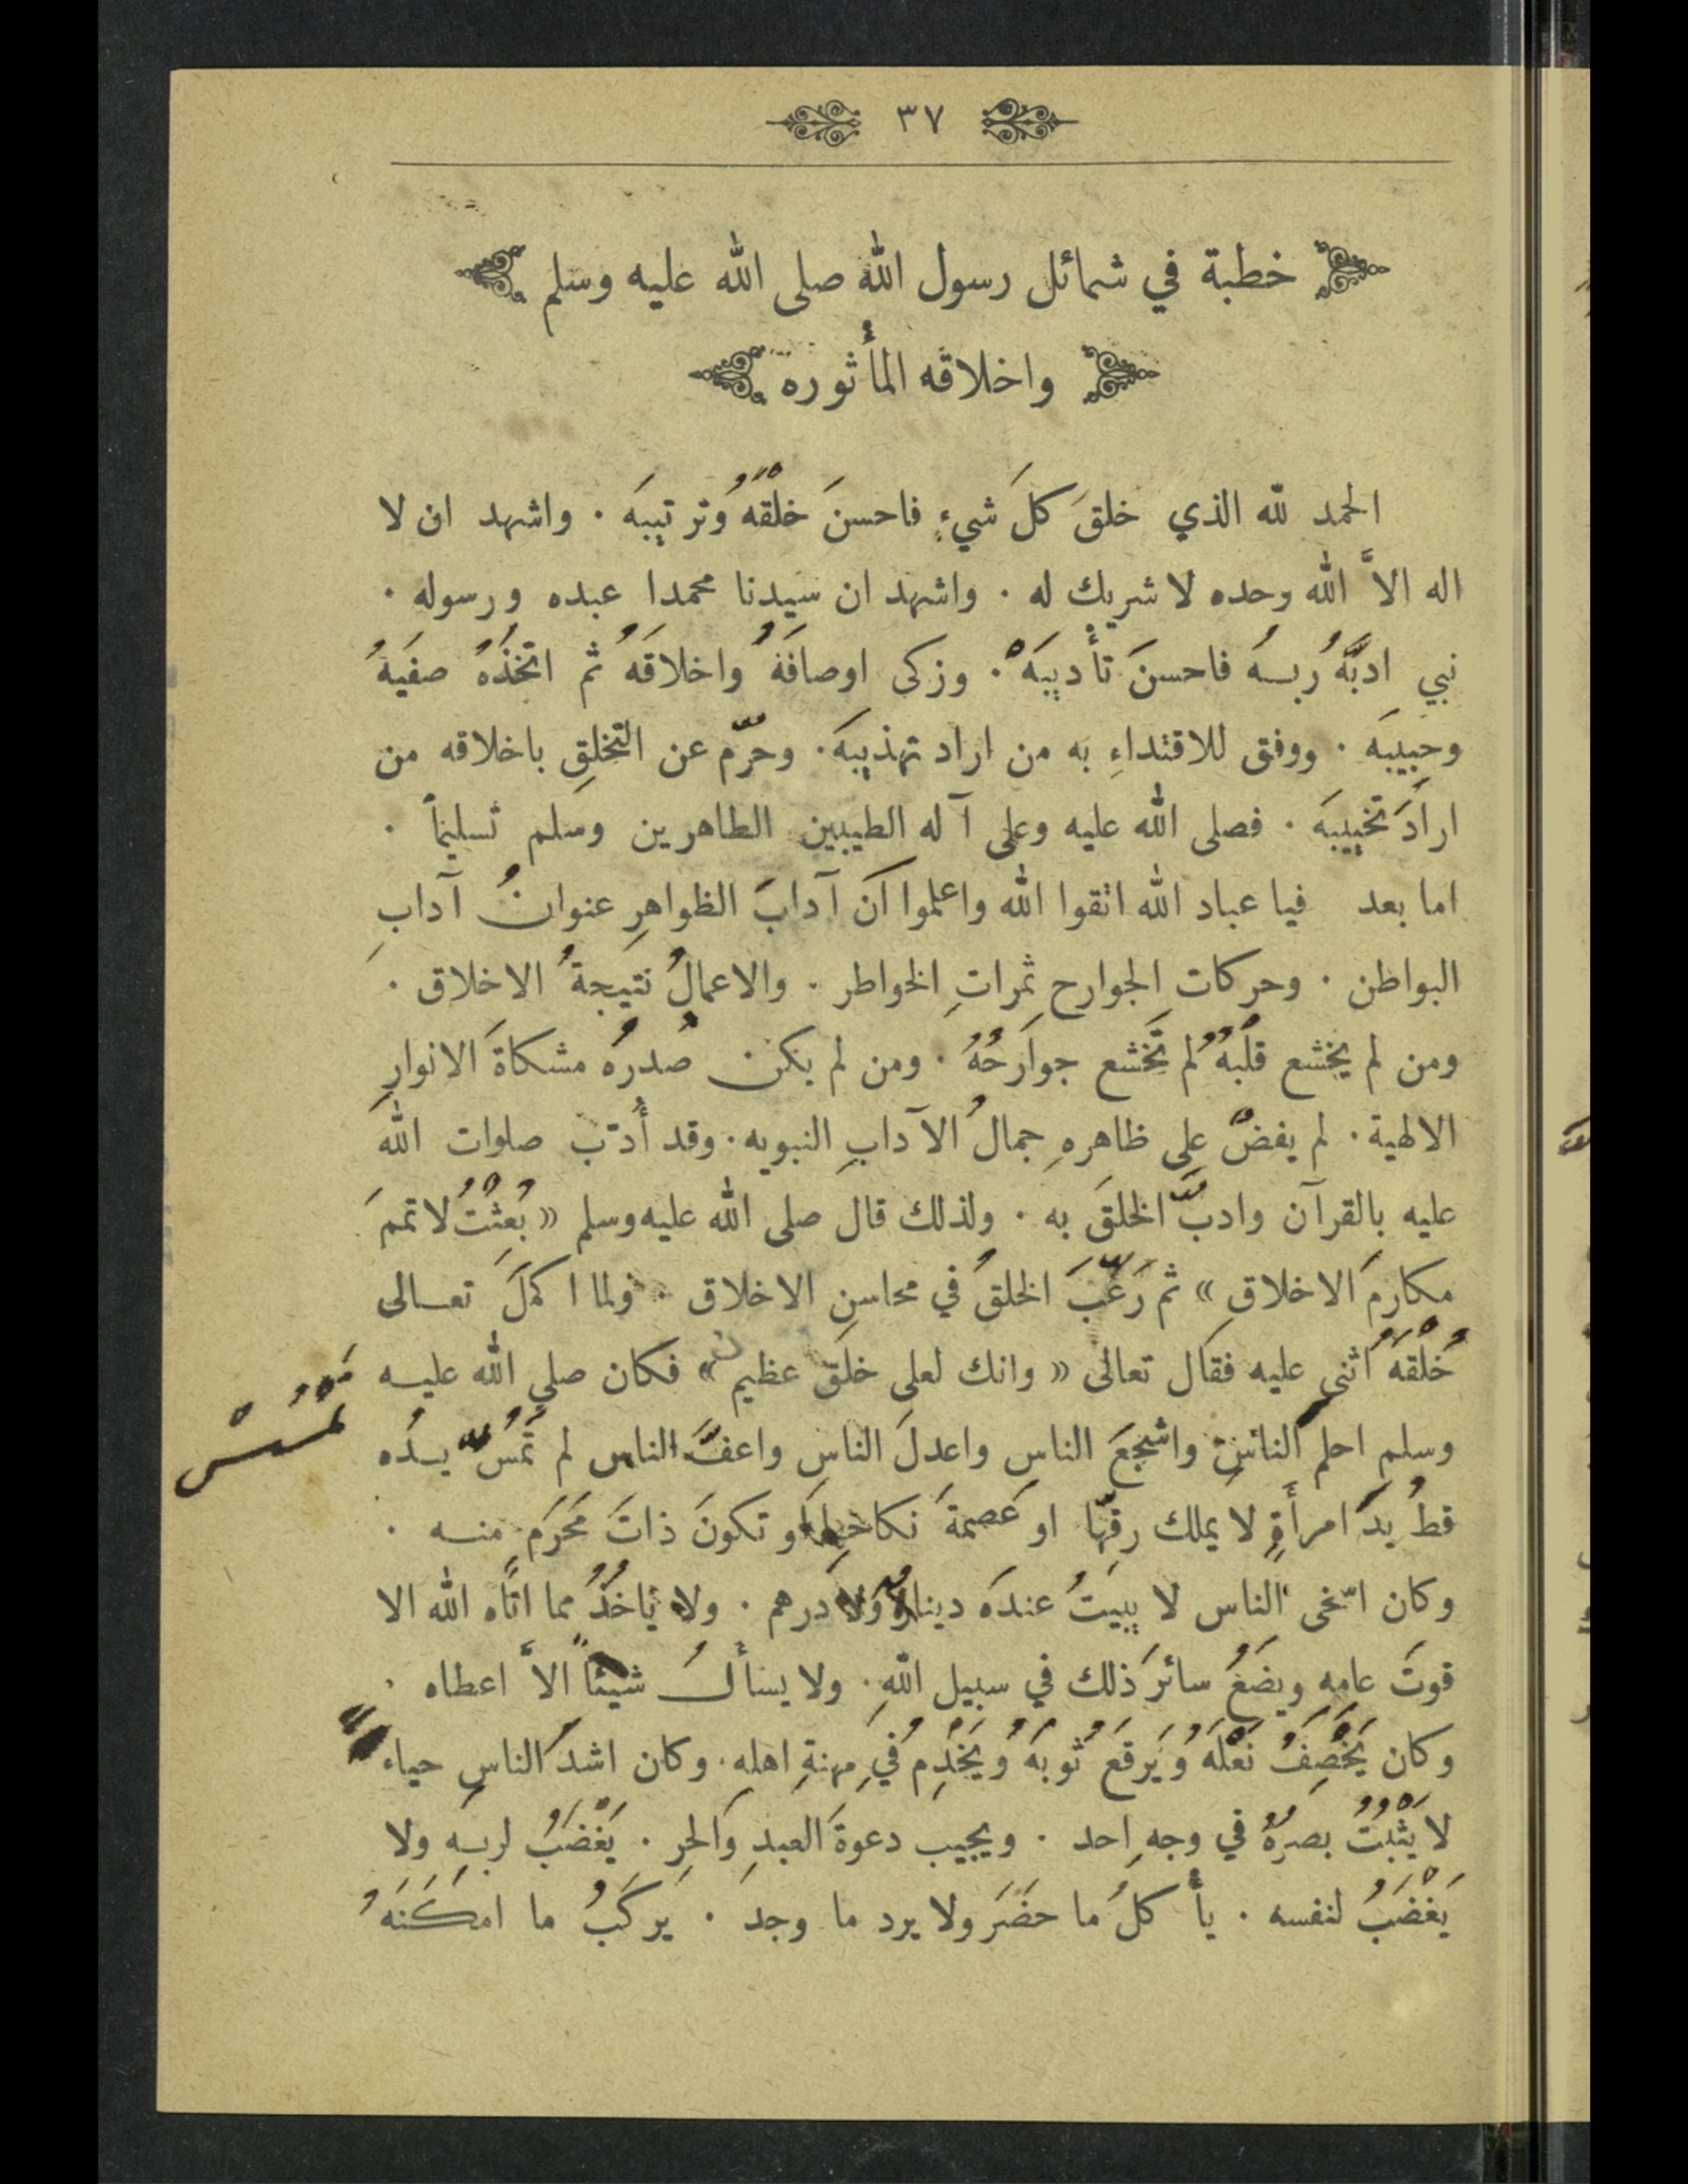 ٣٧
خطبة في شمائل رسول الله صلى الله عليه وسلم
واخلاقه المأثوره
الحمد لله الذي خلقَ كلَ شيءٍ فاحسنَ خلْقَهُ وَترتيبَه . واشهد ان لا
اله الاَّ الله وحده لا شريك له . واشهد ان سيدنا محمدا عبده ورسوله .
نبي ادبَّهُ ربـهُ فاحسنَ تأديبَهْ . وزكى اوصافَهُ واخلاقَهُ ثم اتخذَهُ صفيَهُ
وحبيبَه . ووفق للاقتداءِ به من اراد تهذيبَه . وحرّم عن التخلقِ باخلاقه من
ارادَ تخييبَه . فصلى الله عليه وعلى آله الطيبين الطاهرين وسلم تسليماً .
اما بعد فيا عباد الله اتقوا الله واعلموا انَ آدابَ الظواهرِ عنوانُ آدابِ
البواطن . وحركاتِ الجوارح ثمراتِ الخواطر . والاعمالُ نتيجةُ الاخلاق .
ومن لم يخشع قلبُهُ لم تَخشع جوارحُهُ . ومن لم يكن صدرُه مشكاةَ الانوارِ
الالهية . لم يفضْ على ظاهرهِ جمالُ الآدابِ النبويه . وقد أُدّب صلوات الله
عليه بالقرآن وادبَّ الخلقَ به . ولذلك قال صلى الله عليه وسلم « بُعِثْتُ لاتممَ
مكارمَ الاخلاقِ » ثم رَغّبَ الخلقَ في محاسنِ الاخلاق . ولما اكملَ تعـالى
خُلْقَهُ اثنى عليه فقال تعالى « وانك لعلى خلق عظيم » فكان صلى الله عليـه
وسلم احلم الناسِ واشجعَ الناسِ واعدلَ الناسِ واعفَّ الناس لم تَمَسَّ يـدُه
تَمْسَسْ
قطُ يدَ امرأَةٍ لا يملك رقّها او عصمةَ نكاحِها او تكونَ ذاتَ مَحرَمٍ منـه .
وكان اسخى الناس لا يبيتُ عندَه دينارٌ ولا درهم . ولا يأخذُ مما اتاه الله الا
قوتَ عامِهِ ويضعُ سائرَ ذلك في سبيل اللهِ . ولا يسألُ شيئاً الاَّ اعطاه .
وكان يَخْصِفُ نَعْلَهُ ويَرقَعُ ثوبَهُ ويَخْدِمُ في مهنةِ اهلهِ . وكان اشدَ الناسِ حياء
لا يَثْبُتُ بصرُهُ في وجهِ احد . ويجيب دعوةَ العبدِ والحرِ . يَغْضَبُ لربـهِ ولا
يَغْضَبُ لنفسه . يأكلُ ما حضَرَ ولا يرد ما وجدَ . يركَبُ ما امكَنَهُ